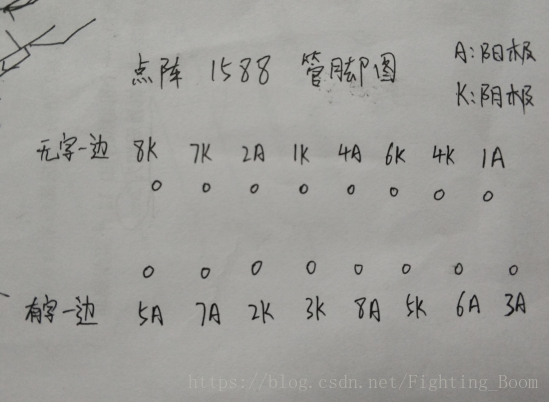 点阵 1588 管脚图
A:阳极
K:阴极
无字一边 8K 7K 2A 1K 4A 6K 4K 1A
有字一边 5A 7A 2K 3K 8A 5K 6A 3A
https://blog.csdn.net/Fighting_Boom